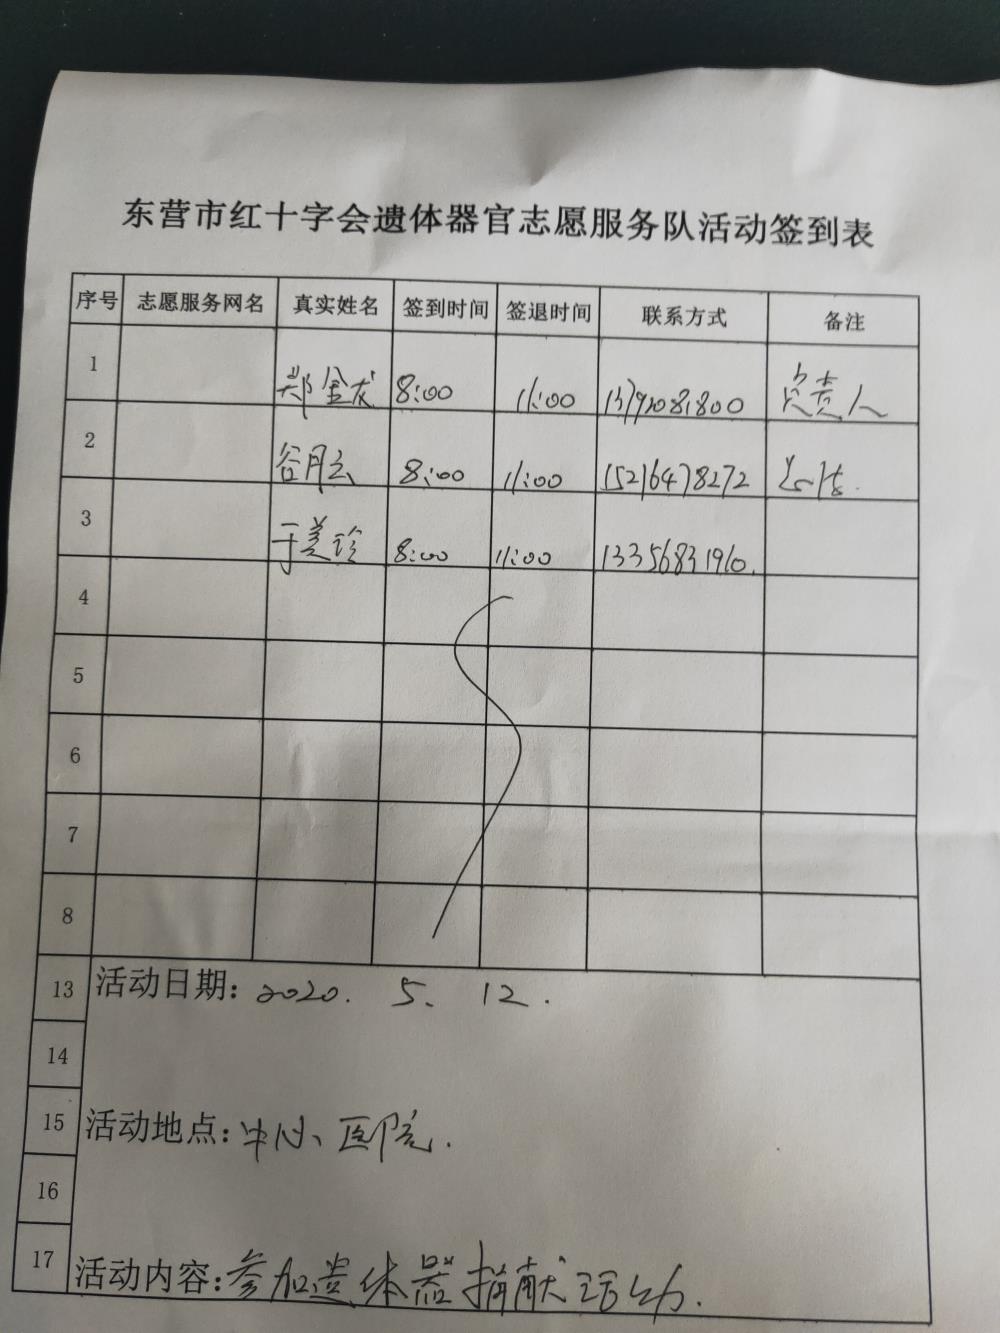 东营市红十字会遗体器官志愿服务队活动签到表
序号 志愿服务网名 真实姓名 签到时间 签退时间 联系方式 备注
1 郑金友 8:00 11:00 13792081800 负责人
2 谷月云 8:00 11:00 15216478272
3 于美珍 8:00 11:00 13356831960.
4
5
6
7
8
13 活动日期: 2020. 5. 12.
14
15 活动地点: 中心医院.
16
17 活动内容: 参加遗体器捐献活动.